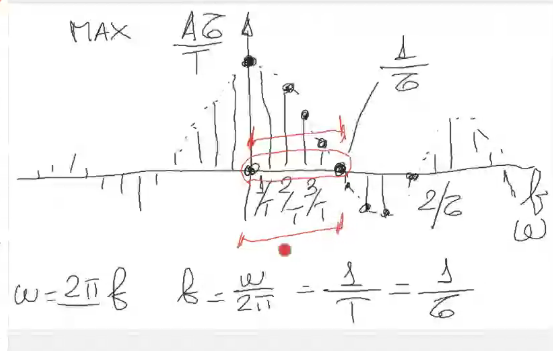 MAX Aτ/T
1/τ
1/T 2/T 3/T 2/τ f
ω
ω = 2π f f = ω/2π = 1/T = 1/τ